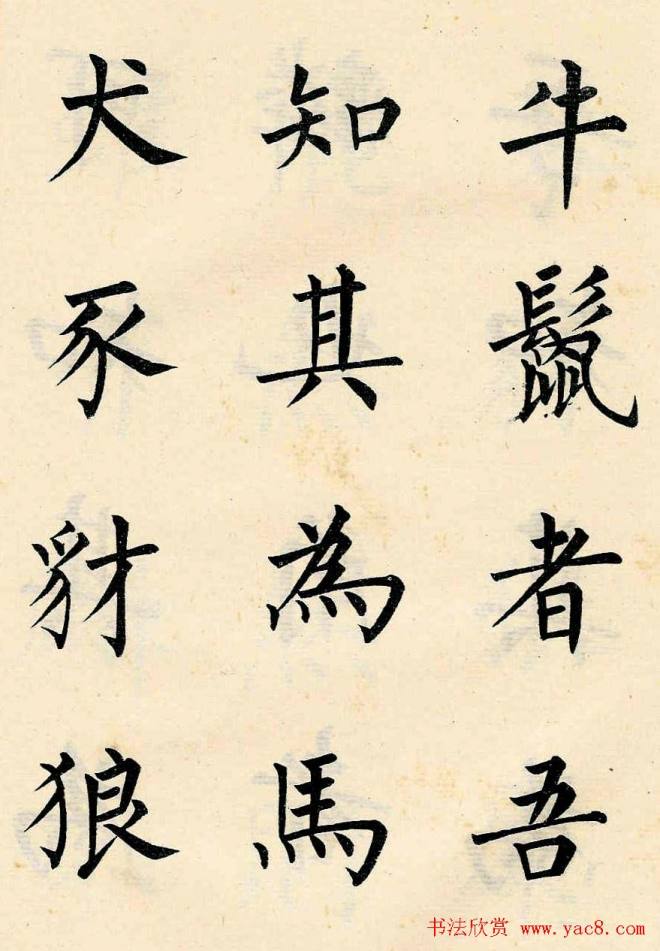 牛鬣者吾
知其為馬
犬豕豺狼
书法欣赏 www.yac8.com